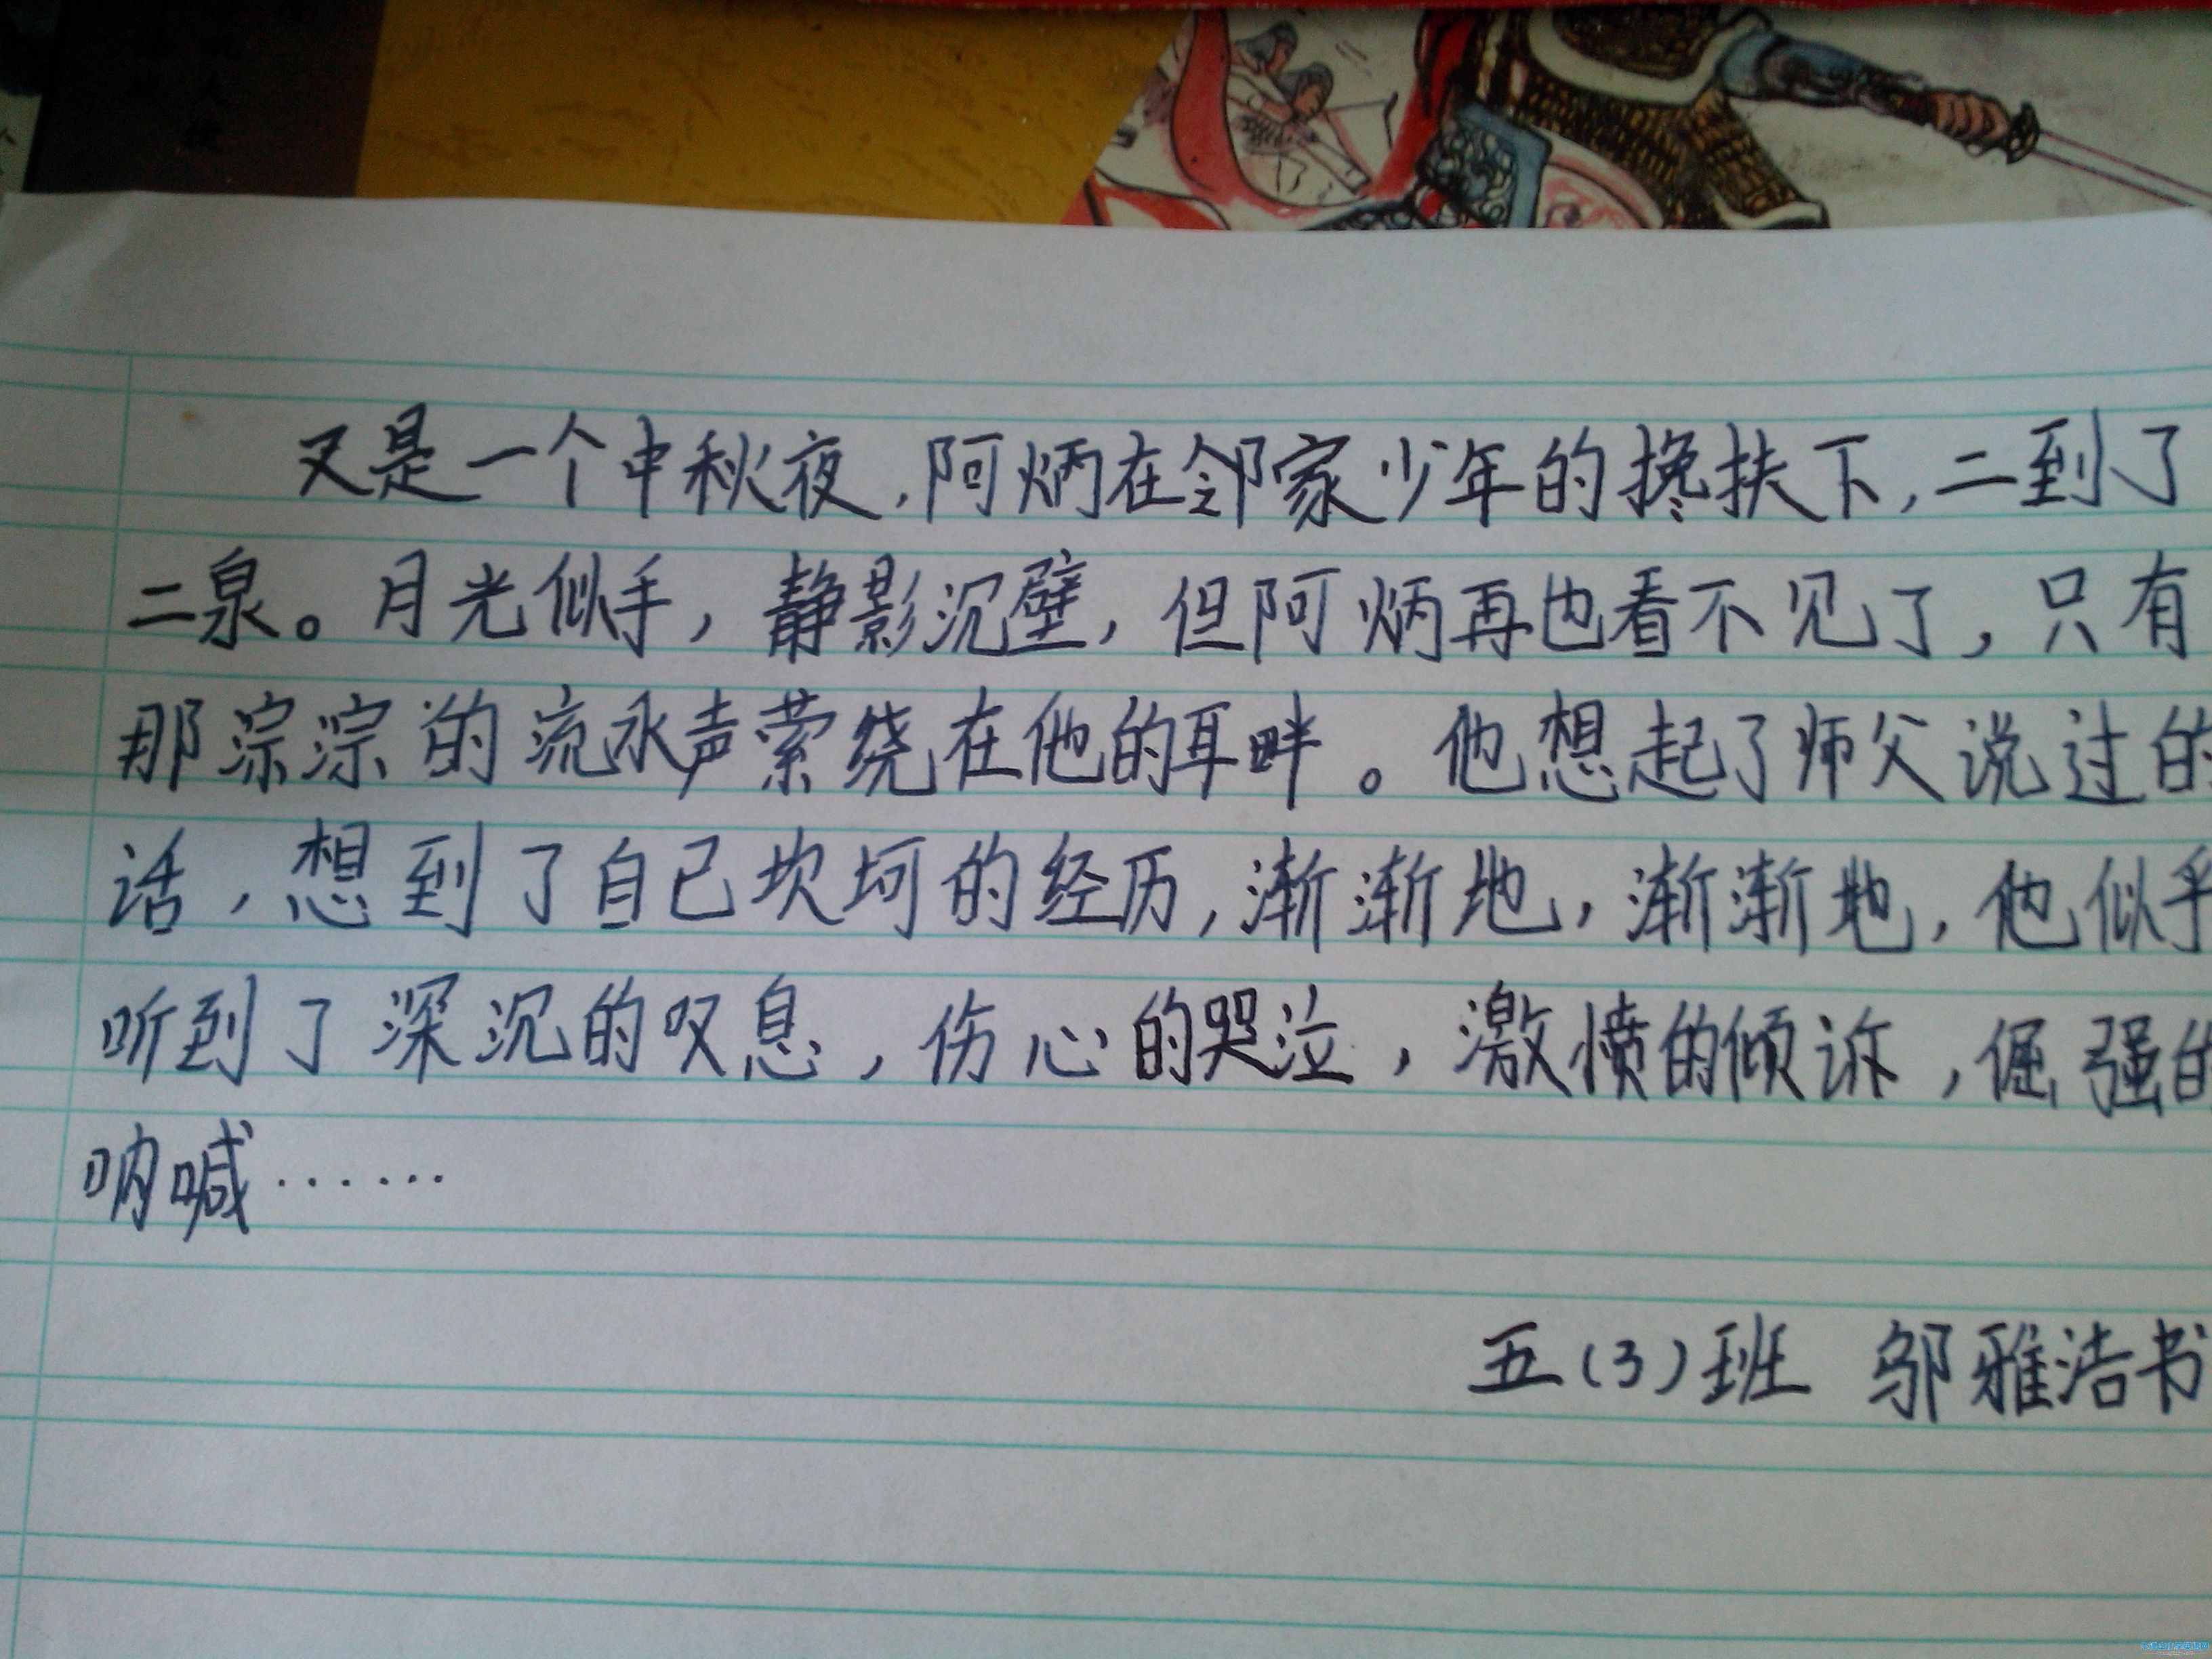 又是一个中秋夜，阿炳在邻家少年的搀扶下，二到了
二泉。月光似手，静影沉壁，但阿炳再也看不见了，只有
那淙淙的流水声萦绕在他的耳畔。他想起了师父说过的
话，想到了自己坎坷的经历，渐渐地，渐渐地，他似乎
听到了深沉的叹息，伤心的哭泣，激愤的倾诉，倔强的
呐喊……
五（3）班 邬雅洁书